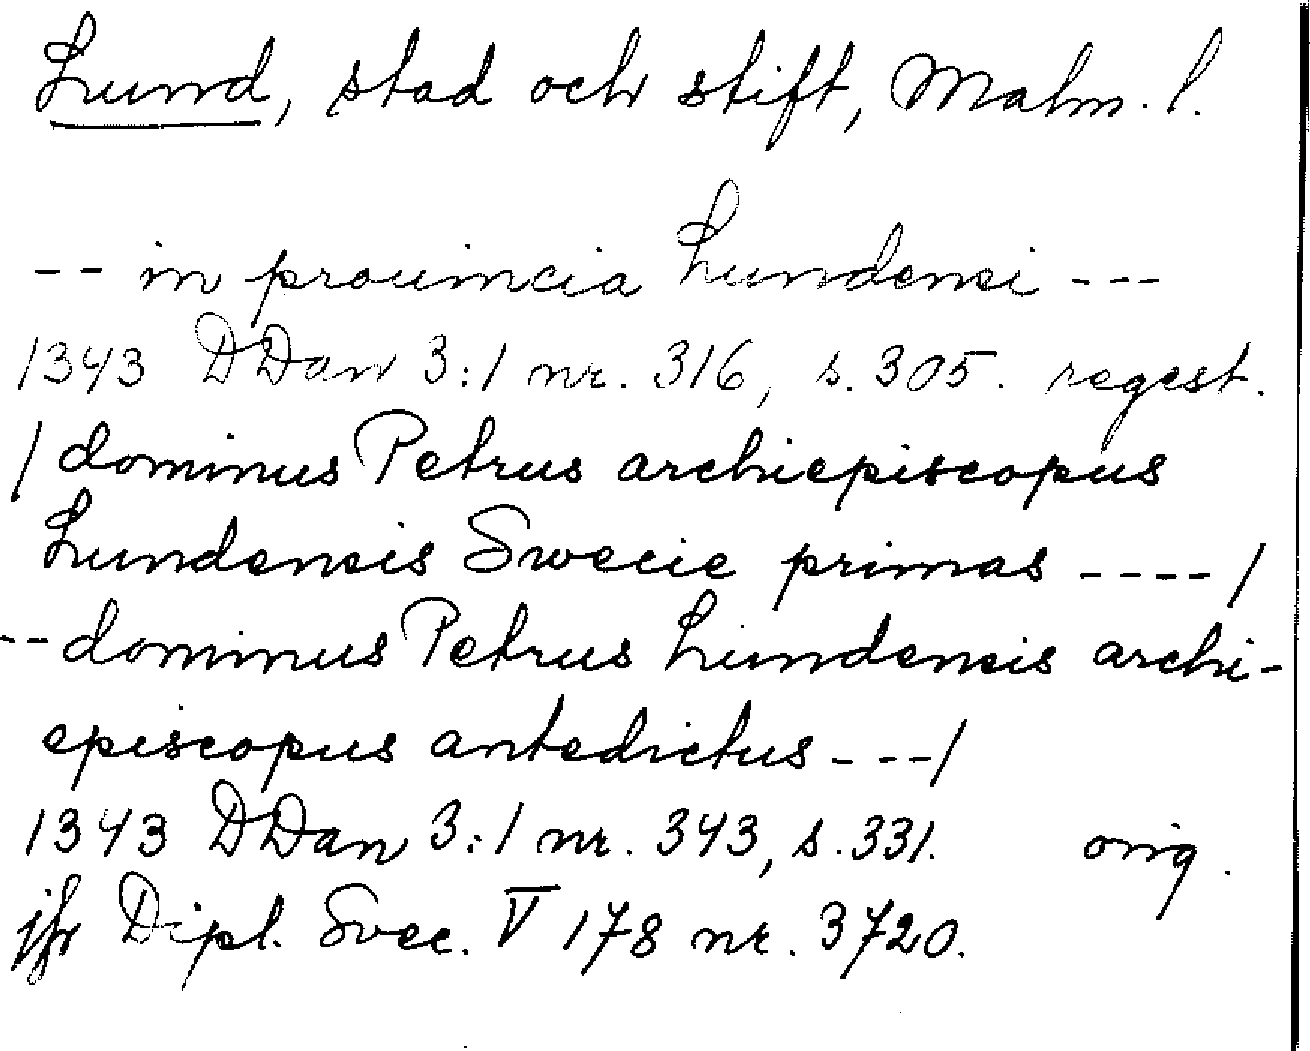 Lund, stad och stift, Malm. l.
-- in prouincia Lundensi ---
1343 DDan 3:1 nr. 316, s. 305. regest.
/dominus Petrus archiepiscopus
Lundensis Swecie primas ----/
-- dominus Petrus Lundensis archi-
episcopus antedictus ---/
1343 DDan 3:1 nr. 343, s. 331. orig.
jfr Dipl. Svec. V 178 nr. 3720.